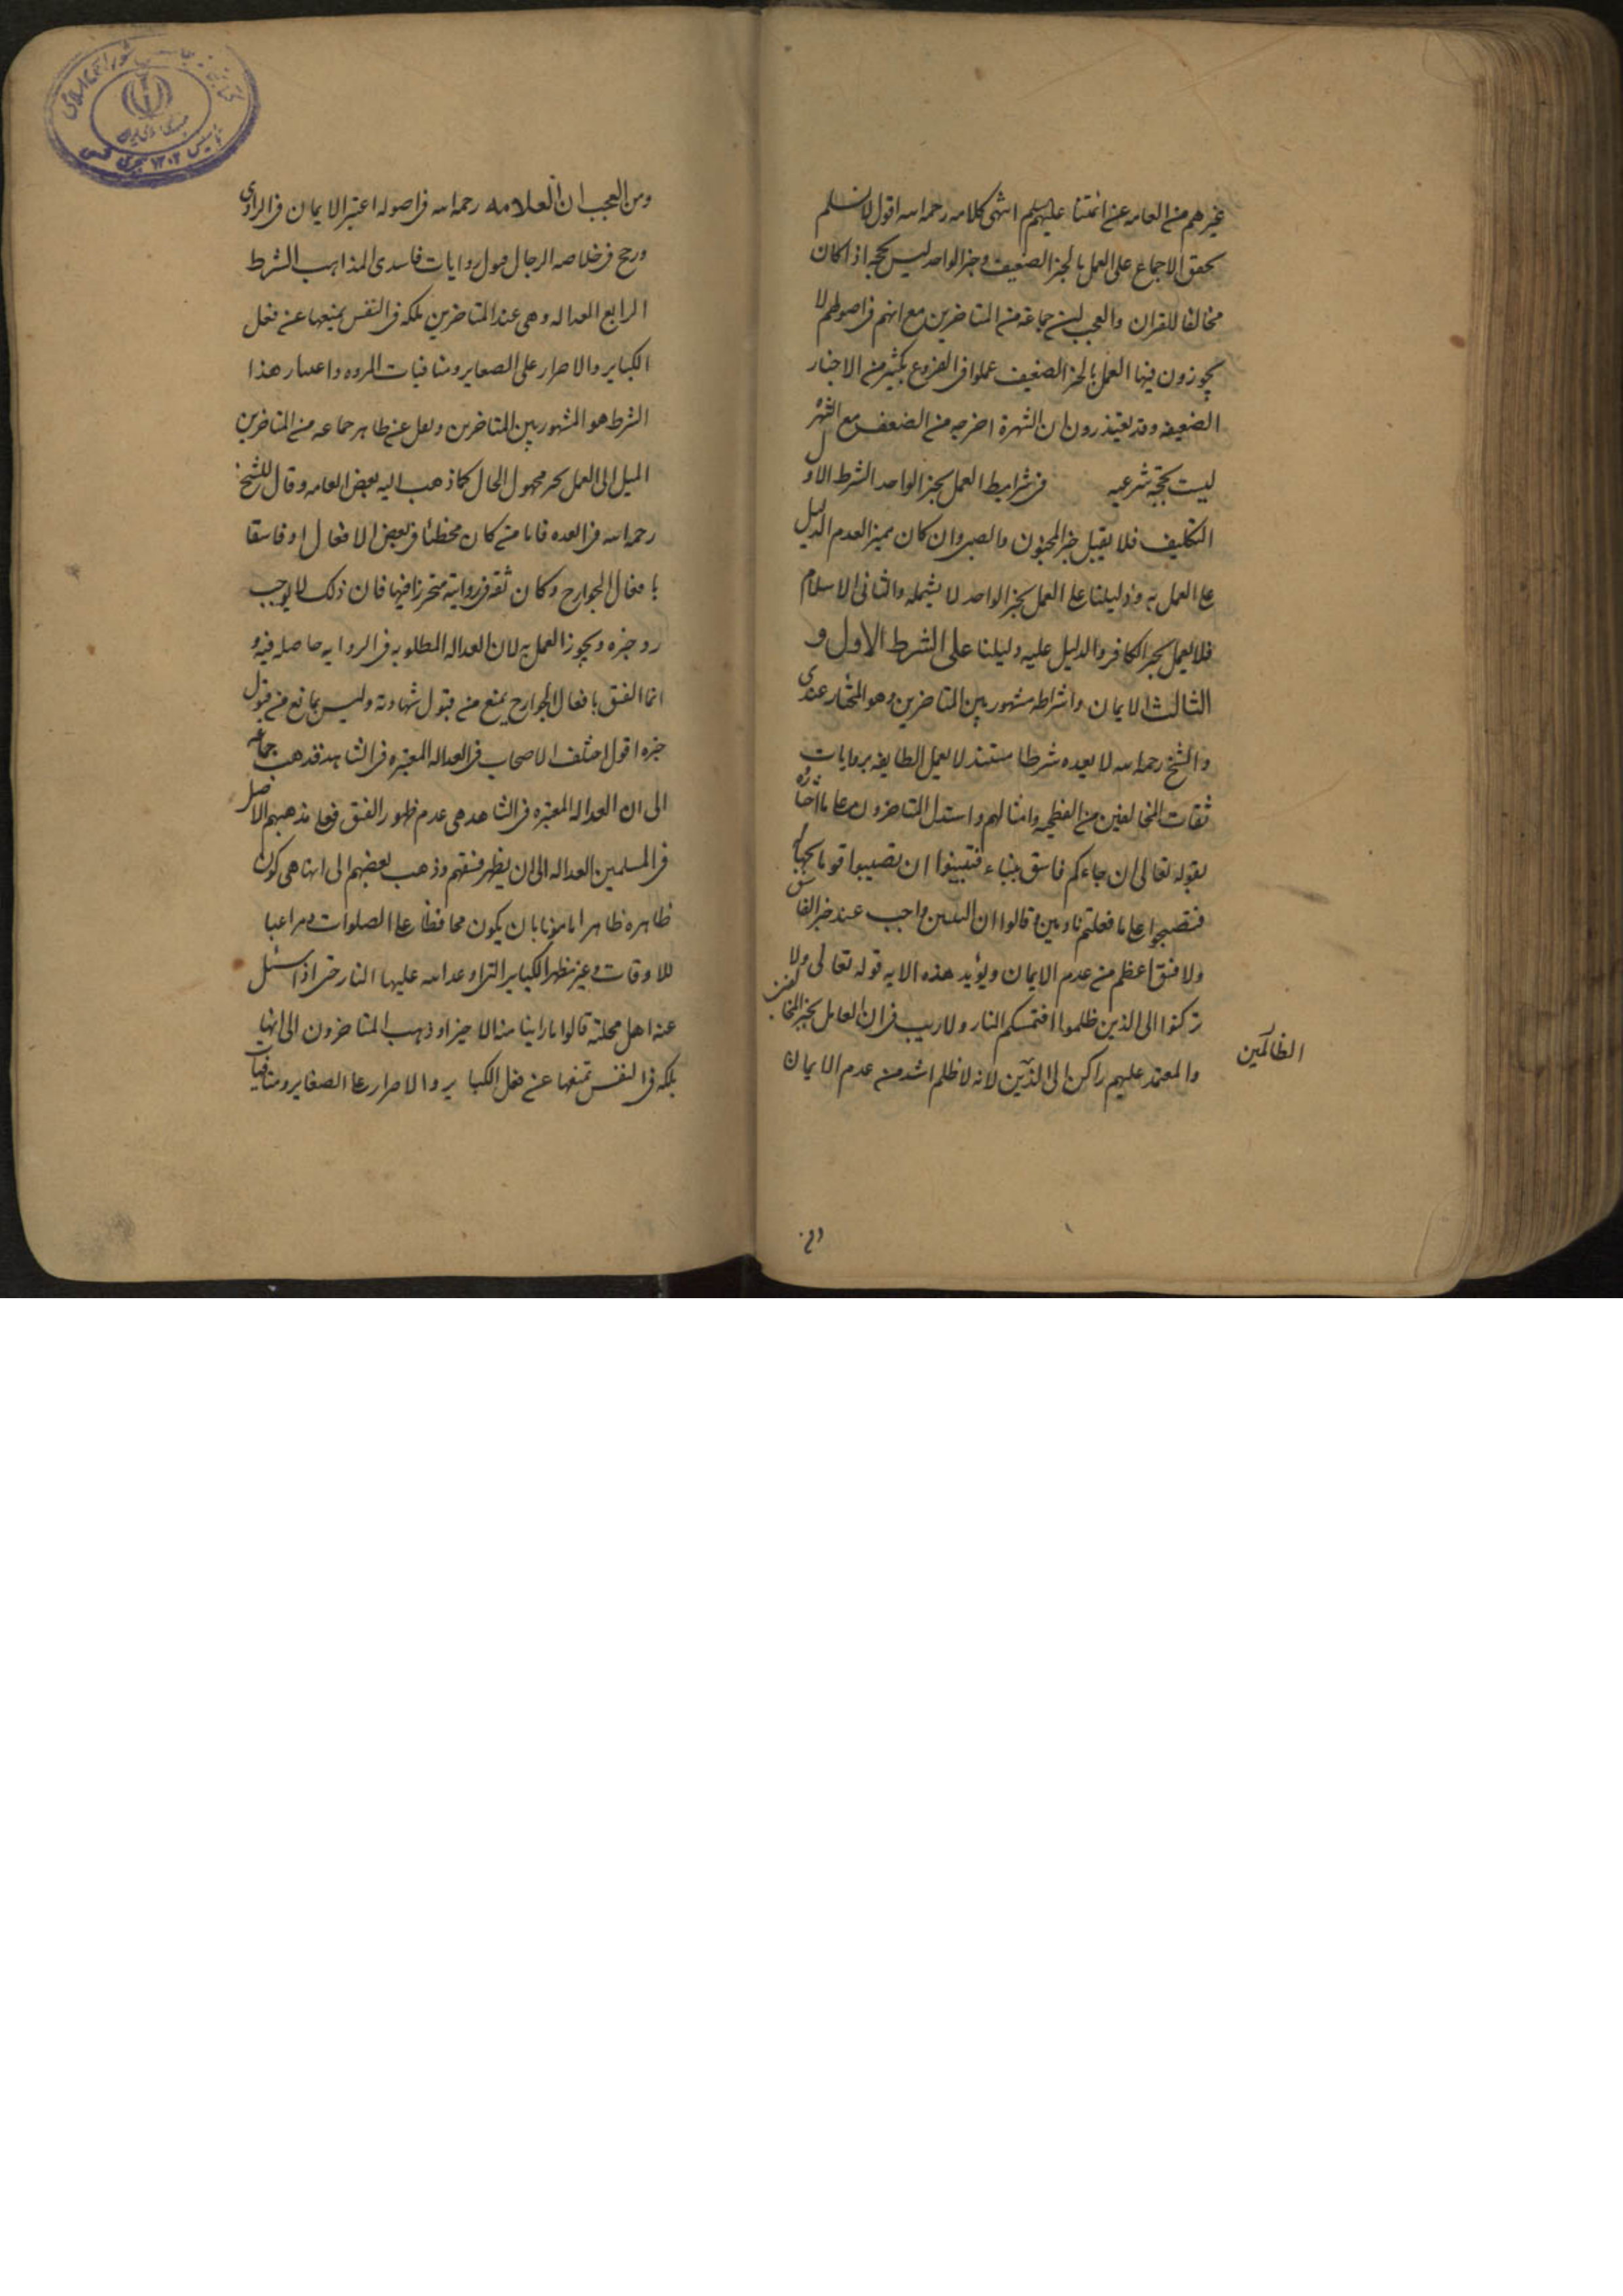 غيرهم من العامه عن ائمتنا عليهم انتهى كلامه رحمه اسه اقول لا نسلم
تحقق الاجماع على العمل بالخبر الضعيف وخبر الواحد ليس بحجه اذا كان
مخالفا للقران والعجب من جماعة من المتاخرين مع انهم فى اصولهم لا
يجوزون فيها العمل بالخبر الضعيف عملوا فى الفروع بكثير من الاخبار
الضعيفه وقد يعتذرون ان الشهرة اخرجه من الضعف مع الشهرة
ليست بحجّة شرعيه فى شرايط العمل بخبر الواحد الشرط الاول
التكليف فلا يقبل خبر المجنون والصبى وان كان مميزا لعدم الدليل
على العمل به ودليلنا على العمل بخبر الواحد لا يشمله والثانى الاسلام
فلا يعمل بخبر الكافر والدليل عليه دليلنا على الشرط الاول و
الثالث الايمان واشراطه مشهور بين المتاخرين وهو المختار عندى
والشيخ رحمه اسه لا يعده شرطا مستندا لعمل الطايفه بروايات
ثقات المخالفين من الفطحيه وامثالهم واستدل المتاخرون على ما اختاروه
بقوله تعالى ان جاءكم فاسق بنباء فتبينوا ان تصيبوا قوما بجهالة
فتصبحوا على ما فعلتم نادمين وقالوا ان التبين واجب عند خبر الفاسق
ولا فسق اعظم من عدم الايمان ويؤيد هذه الايه قوله تعالى ولا
تركنوا الى الذين ظلموا فتمسكم النار ولا ريب فى ان العامل بخبر المخالفين
والمعتمد عليهم راكن الى الذين لانه لا ظلم اشد من عدم الايمان
الظالمين
ومن العجب ان العلامه رحمه اسه فى اصوله اعتبر الايمان فى الراوى
ورجح فى خلاصه الرجال قبول روايات فاسدى المذاهب الشرط
الرابع العداله وهى عند المتاخرين ملكه فى النفس يمنعها عن فعل
الكباير والاصرار على الصغاير ومنافيات المروه واعتبار هذا
الشرط هو المشهور بين المتاخرين ونقل عن ظاهر جماعه من المتاخرين
الميل الى العمل بخبر مجهول الحال كما ذهب اليه بعض العامه وقال الشيخ
رحمه اسه فى العده فاما من كان مخطئا فى بعض الافعال او فاسقا
بافعال الجوارح وكان ثقه فى روايته متحرزا فيها فان ذلك لا يوجب
رد خبره ويجوز العمل به لان العداله المطلوبه فى الروايه حاصله فيه و
انما الفسق بافعال الجوارح يمنع من قبول شهادته وليس بمانع من قبول
خبره اقول اختلف الاصحاب فى العداله المعتبره فى الشاهد فذهب جماعه
الى ان العداله المعتبره فى الشاهد هى عدم ظهور الفسق فعلى مذهبهم الاصل
فى المسلمين العداله الى ان يظهر فسقهم وذهب بعضهم الى انها هى كون
ظاهره ظاهرا مامونا بان يكون محافظا على الصلوات ومراعيا
للاوقات وغير مظهر الكباير التى اوعد اسه عليها النار حتى اذا سئل
عنه اهل محلته قالوا ما راينا منه الا خيرا وذهب المتاخرون الى انها
ملكه فى النفس تمنعها عن فعل الكباير والاصرار على الصغاير ومنافيات